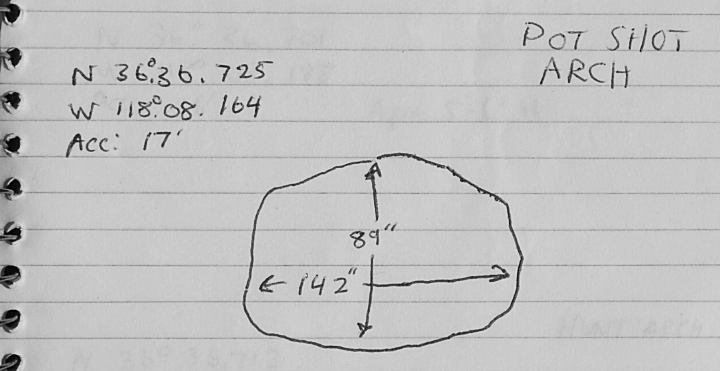 POT SHOT
ARCH
N 36°36.725
W 118°08.164
Acc: 17'
89"
142"